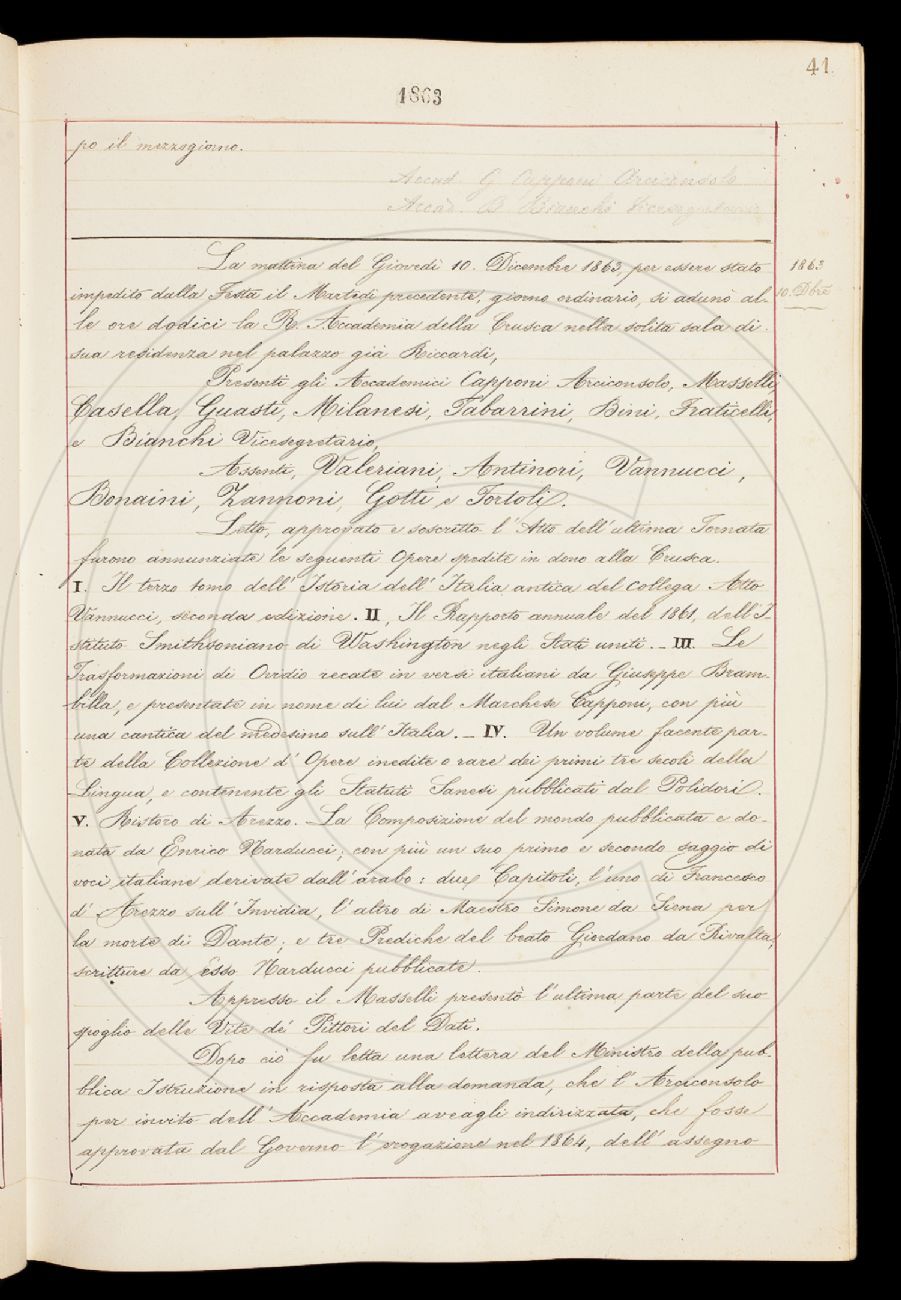 41.
1863
po il mezzogiorno.
Accad. G. Capponi Arciconsolo
Accad. B. Bianchi Vicesegretario
La mattina del Giovedì 10. Dicembre 1863, per essere stato
1863
impedito dalla Festa il Martedì precedente, giorno ordinario, si adunò al-
10. Dbre
le ore dodici la R. Accademia della Crusca nella solita sala di
sua residenza nel palazzo già Riccardi,
Presenti gli Accademici Capponi Arciconsolo, Masselli,
Casella, Guasti, Milanesi, Tabarrini, Bini, Fraticelli,
e Bianchi Vicesegretario,
Assenti, Valeriani, Antinori, Vannucci,
Bonaini, Zannoni, Gotti e Tortoli.
Letto, approvato e soscritto l'Atto dell'ultima Tornata
furono annunziate le seguenti Opere spedite in dono alla Crusca.
I. Il terzo tomo dell'Istoria dell'Italia antica del collega Atto
Vannucci, seconda edizione. II, Il Rapporto annuale del 1861, dell'I-
stituto Smithsoniano di Washington negli Stati uniti. _ III. Le
Trasformazioni di Ovidio recate in versi italiani da Giuseppe Bram-
billa, e presentate in nome di lui dal Marchese Capponi, con più
una cantica del medesimo sull'Italia. _ IV. Un volume facente par-
te della Collezione d'Opere inedite o rare dei primi tre secoli della
Lingua, e contenente gli Statuti Sanesi pubblicati dal Polidori.
V. Ristoro di Arezzo. _ La Composizione del mondo pubblicata e do-
nata da Enrico Narducci; con più un suo primo e secondo saggio di
voci italiane derivate dall'arabo: due Capitoli, l'uno di Francesco
d'Arezzo sull'Invidia, l'altro di Maestro Simone da Siena per
la morte di Dante; e tre Prediche del beato Giordano da Rivalta,
scritture da esso Narducci pubblicate.
Appresso il Masselli presentò l'ultima parte del suo
spoglio delle Vite de' Pittori del Dati.
Dopo ciò fu letta una lettera del Ministro della pub-
blica Istruzione in risposta alla domanda, che l'Arciconsolo
per invito dell'Accademia aveagli indirizzata, che fosse
approvata dal Governo l'erogazione nel 1864, dell'assegno